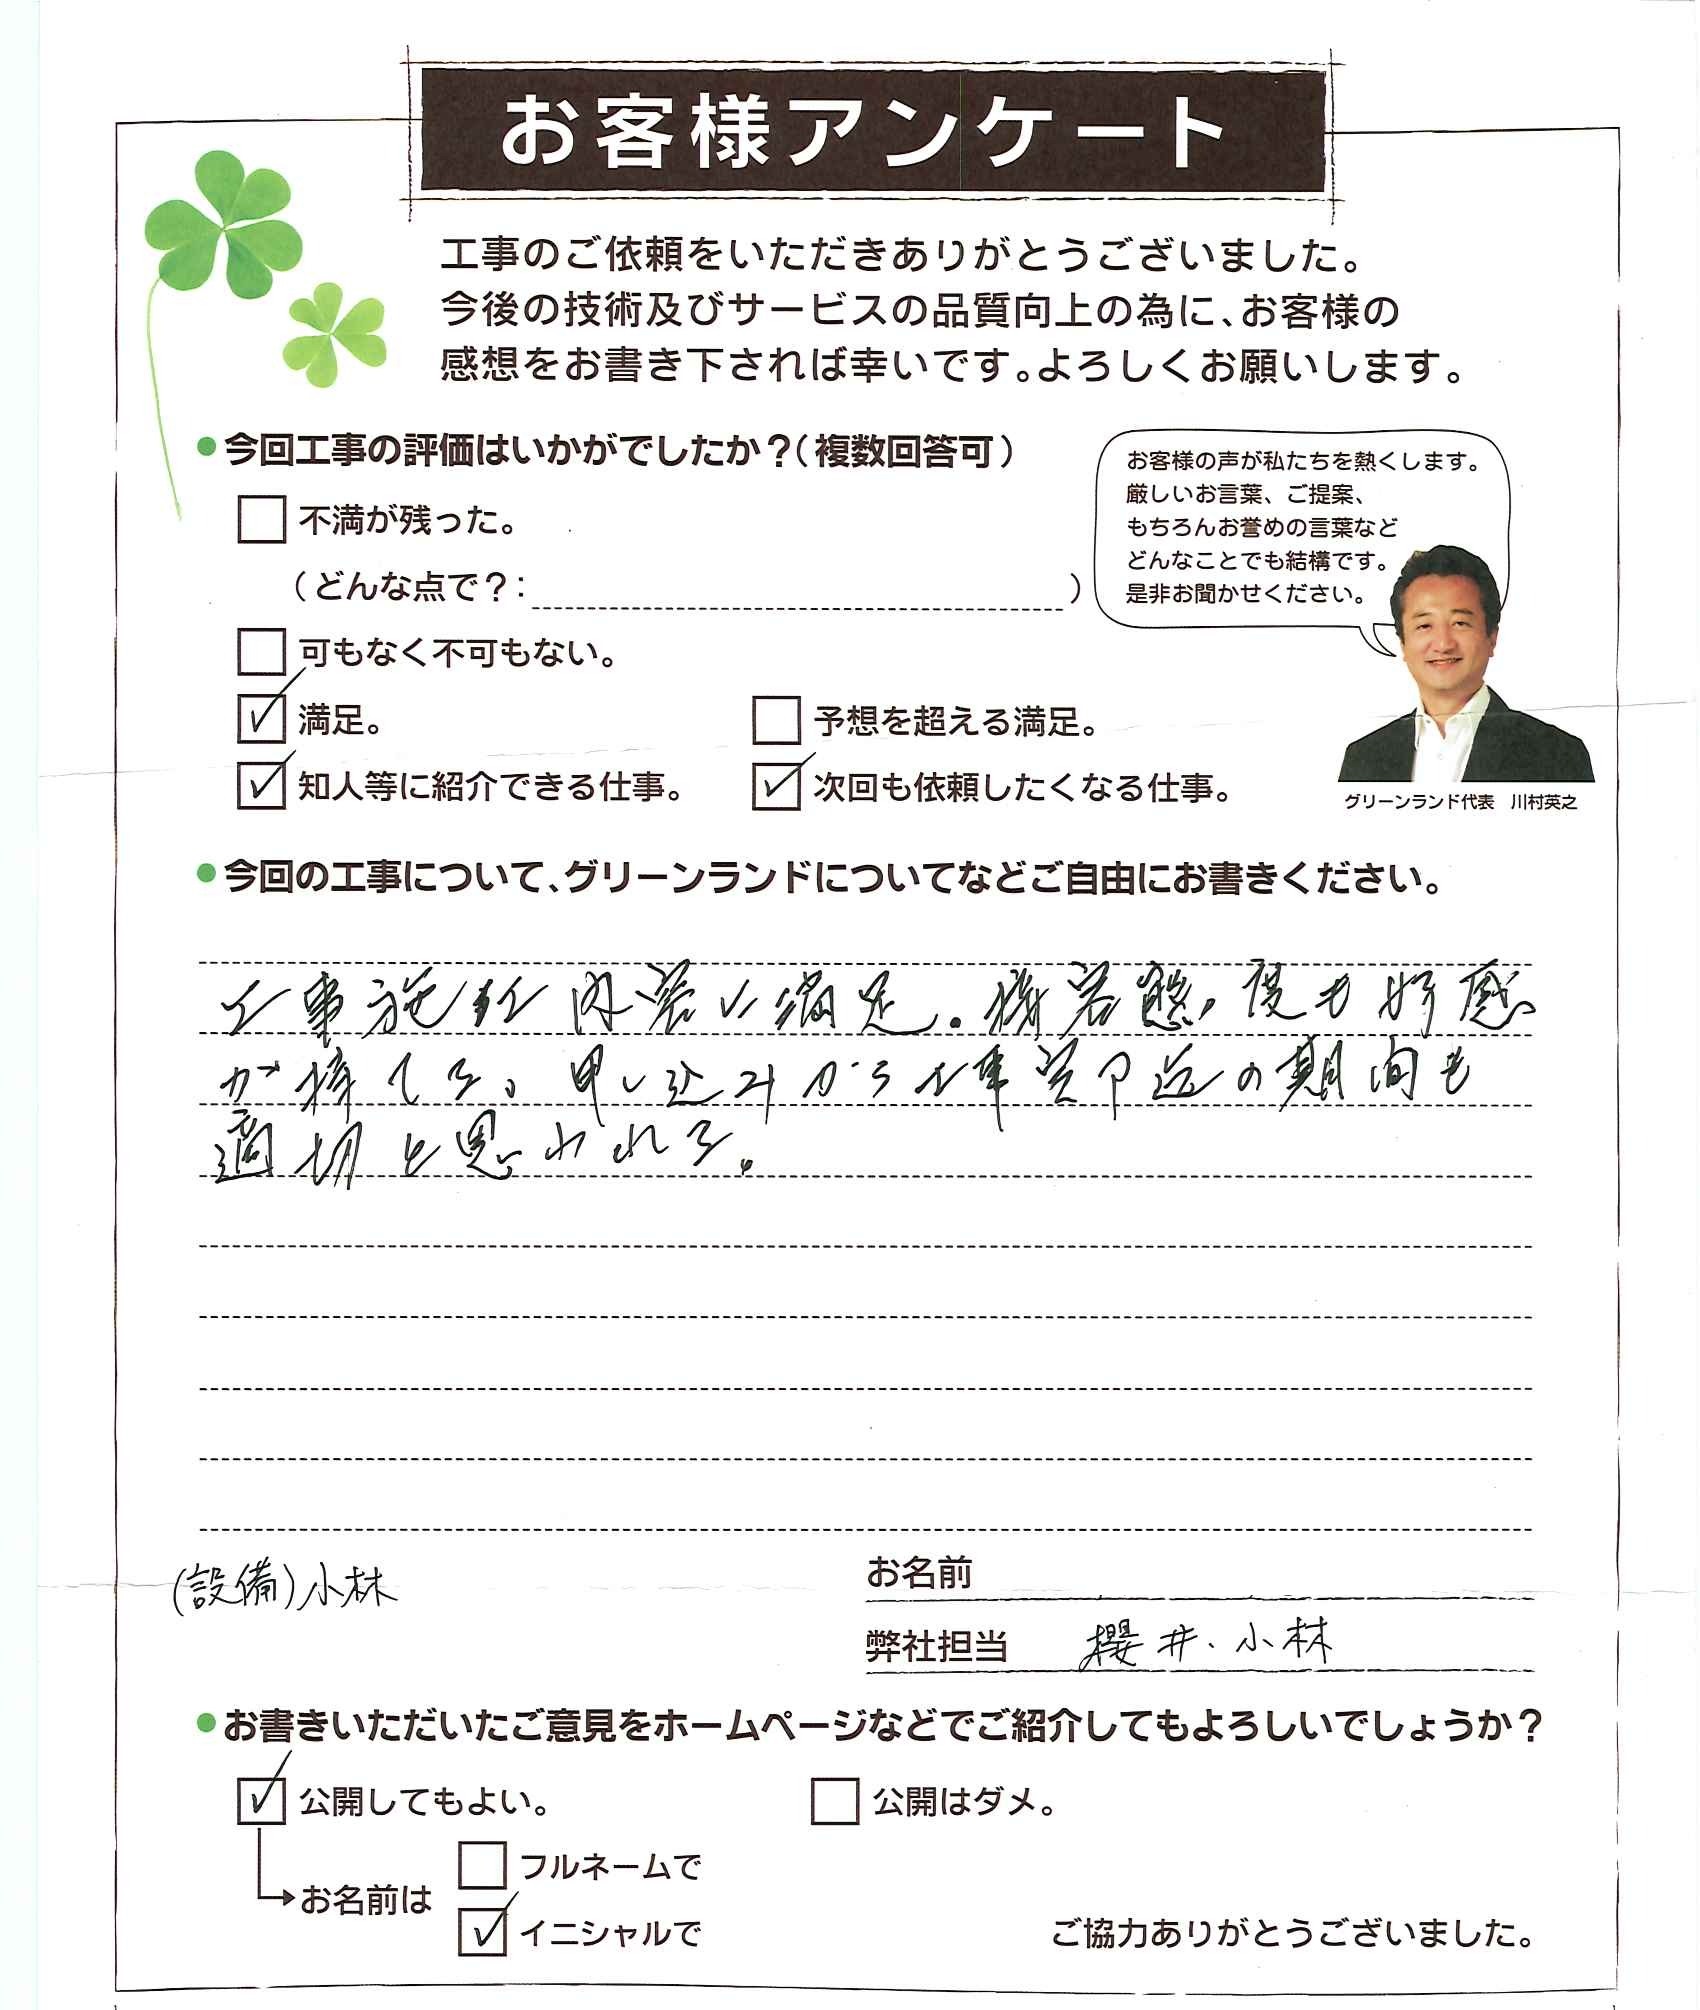 お客様アンケート
工事のご依頼をいただきありがとうございました。
今後の技術及びサービスの品質向上の為に、お客様の
感想をお書き下されば幸いです。よろしくお願いします。
●今回工事の評価はいかがでしたか？（複数回答可）
不満が残った。
（どんな点で？：　）
可もなく不可もない。
満足。
予想を超える満足。
知人等に紹介できる仕事。
次回も依頼したくなる仕事。
お客様の声が私たちを熱くします。
厳しいお言葉、ご提案、
もちろんお誉めの言葉など
どんなことでも結構です。
是非お聞かせください。
グリーンランド代表　川村英之
●今回の工事について、グリーンランドについてなどご自由にお書きください。
工事施工内容に満足。接客態度も好感
が持てる。申し込みから工事完了迄の期間も
適切と思われる。
(設備)小林
お名前
弊社担当　櫻井、小林
●お書きいただいたご意見をホームページなどでご紹介してもよろしいでしょうか？
公開してもよい。
公開はダメ。
お名前は
フルネームで
イニシャルで
ご協力ありがとうございました。